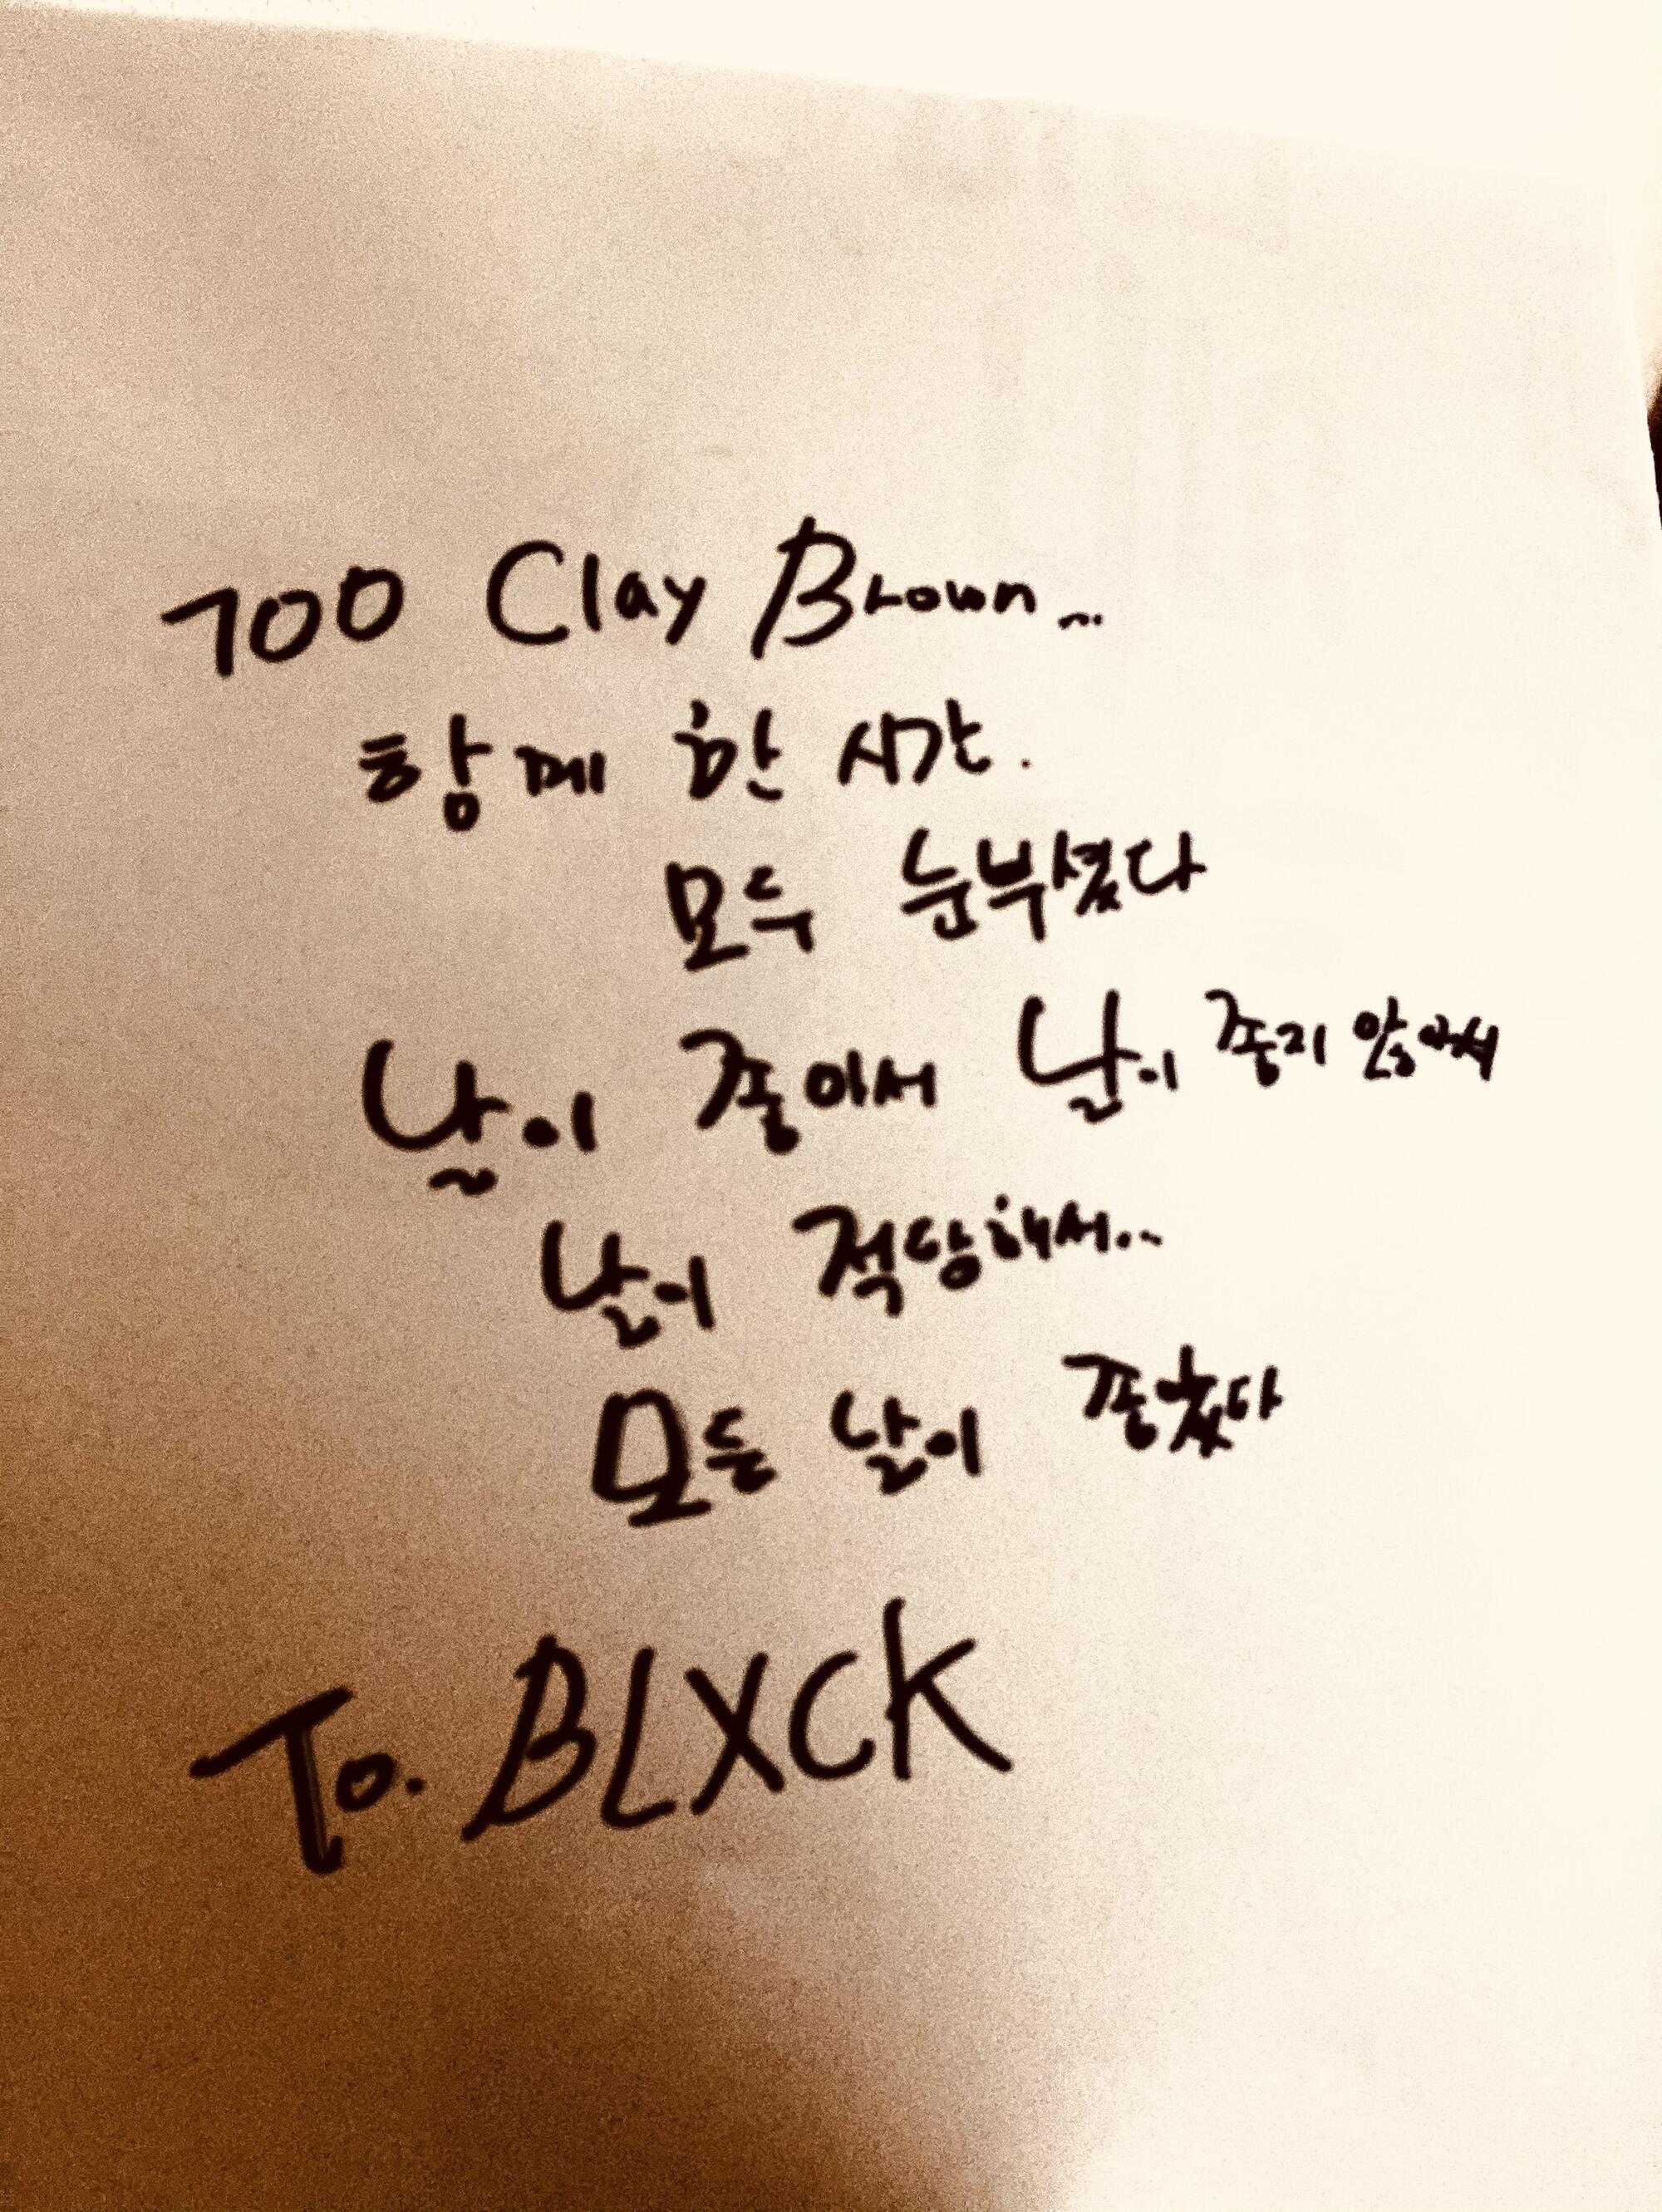 700 Clay Brown...
함께 한 시간.
모두 눈부셨다
날이 좋아서 날이 좋지 않아서
날이 적당해서..
모든 날이 좋았다
To. BLXCK